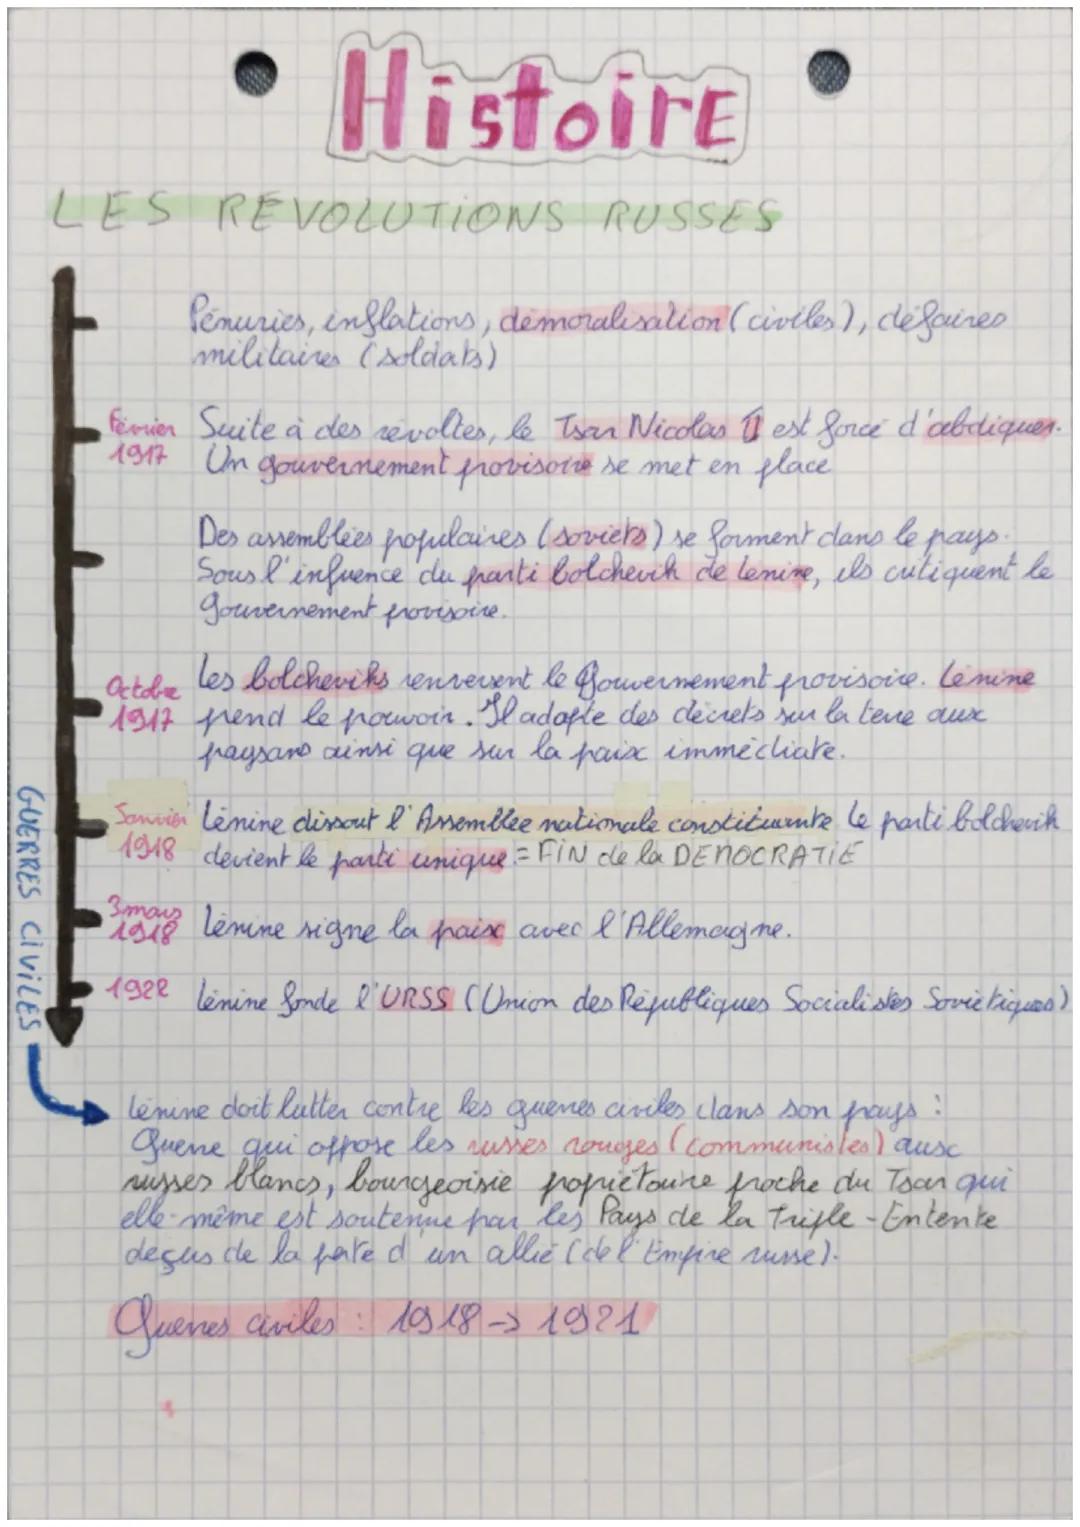 HistoirE
LES REVOLUTIONS RUSSES
Pénuries, inflations, démoralisation (civiles), défaires
militaires (soldats)
Février
1917
Suite à des révoltes, le Tsar Nicolas II est forcé d'abdiquer.
Un gouvernement provisoire se met en place
Des assemblées populaires (soviets) se forment dans le pays.
Sous l'infuence du parti bolchevik de Lénine, ils critiquent le
gouvernement provisoire.
Octobre
1917
Les bolcheviks renversent le Gouvernement provisoire. Lénine
prend le pouvoir. Il adopte des décrets sur la terre aux
paysans ainsi que sur la paix immédiate.
Janvier
1918
Lénine dissout l'Assemblée nationale constituante Le parti bolchevik
devient le parti unique. = FIN de la DEMOCRATIE
3 mars
1918
Lénine signe la paix avec l'Allemagne.
1922
Lénine fonde l'URSS (Union des Républiques Socialistes Soviétiques)
GUERRES CIVILES
Lénine doit lutter contre les guerres civiles dans son pays :
Guerre qui oppose les russes rouges (communistes) aux
russes blancs, bourgeoisie propriétaire proche du Tsar qui
elle-même est soutenue par les Pays de la Triple-Entente
déçus de la perte d'un allié (de l'Empire russe).
Guerres civiles : 1918 → 1921